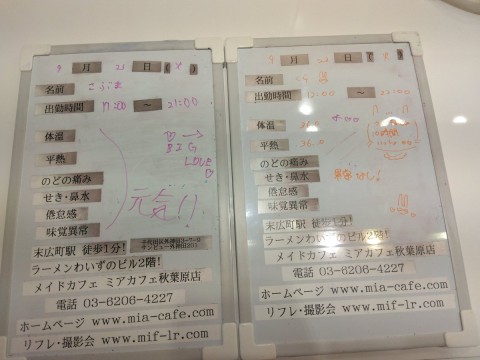 9月23日(火)
名前 こぶた
出勤時間 17:00 ～ 21:00
体温
平熱
のどの痛み
せき・鼻水
倦怠感
味覚異常
BIG
LOVE
元気!!
末広町駅 徒歩1分!
ラーメンわいずのビル2階!
メイドカフェ ミアカフェ秋葉原店
電話 03-6206-4227
ホームページ www.mia-cafe.com
リフレ・撮影会 www.mif-lr.com
9月23日
名前
出勤時間 12:00 ～
体温
平熱
のどの痛み
せき・鼻水
倦怠感
味覚異常
異常なし!
末広町駅 徒歩1分!
ラーメンわいずのビル2階!
メイドカフェ ミアカフェ秋葉原店
電話 03-6206-4227
ホームページ www.mia-cafe.com
リフレ・撮影会 www.mif-lr.com